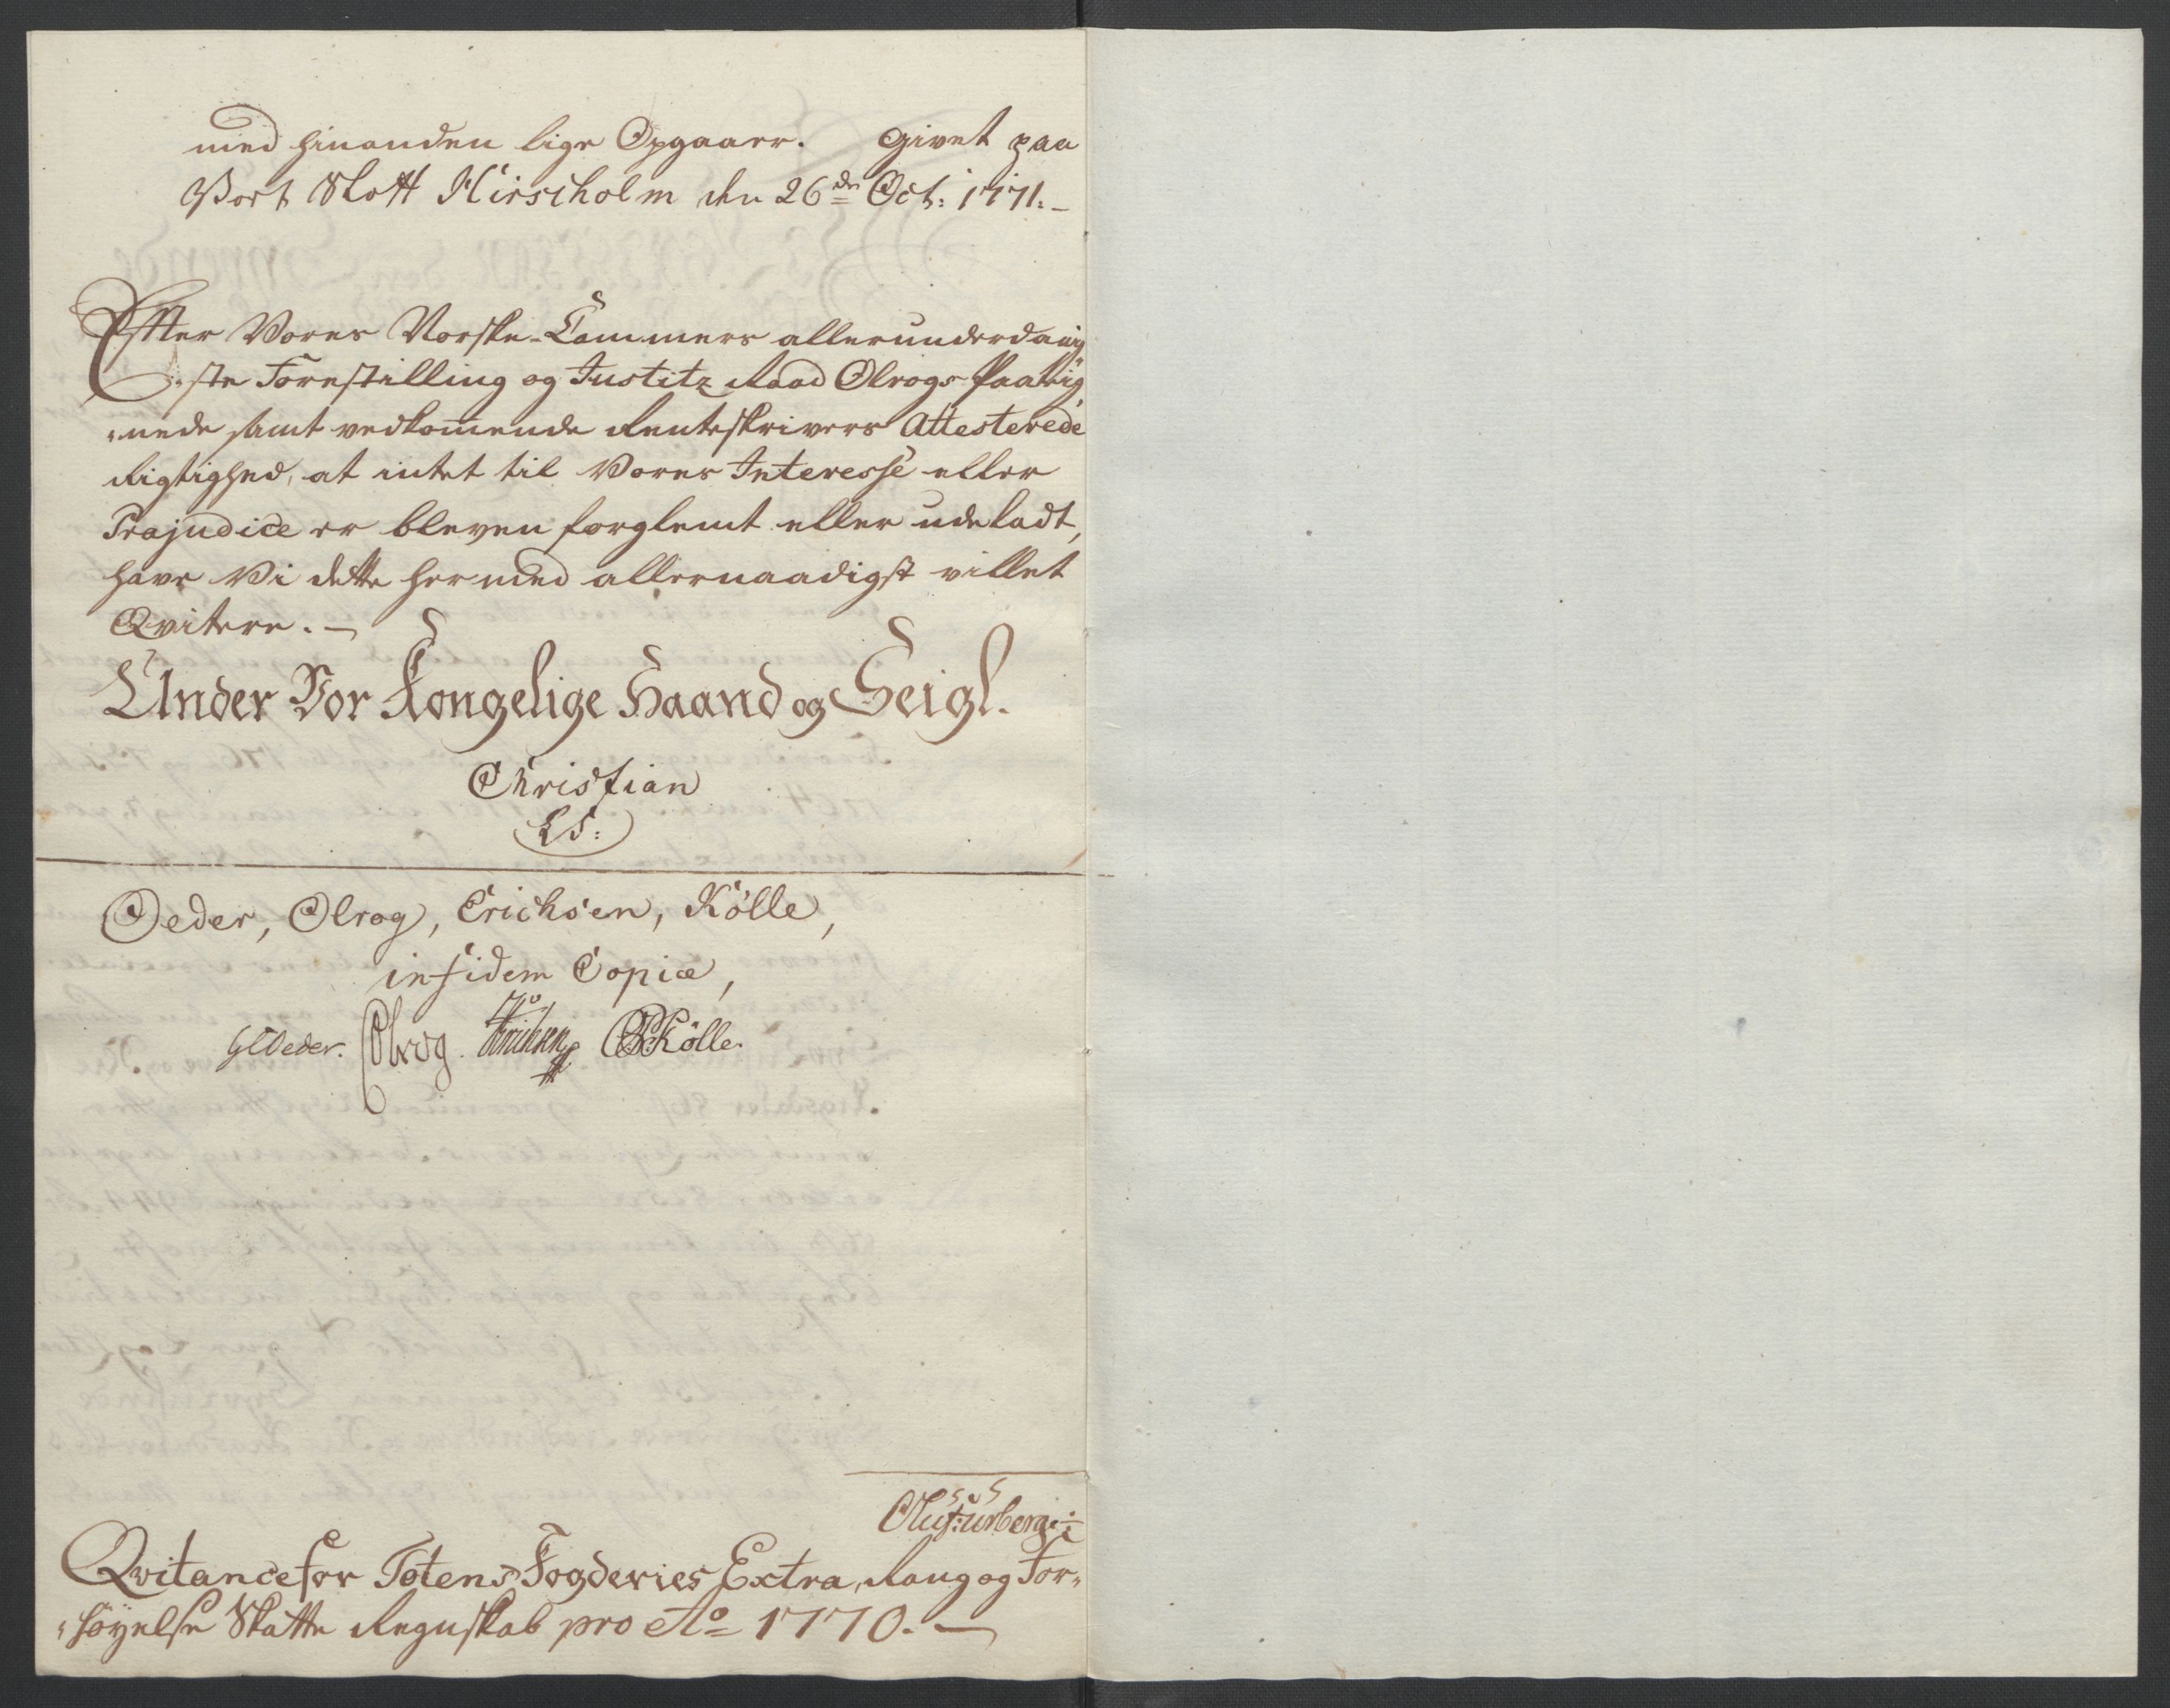 med hinanden lige Opgaaer. Givet paa
Vort Slott Hirscholm den 26de Oct: 1771.
Efter Vores Norske-Cammers allerunderdanig„
„ste Forestilling og Justitz Raad Olrogs Paateig„
„nede samt vedkommende Renteskrivers Attesterede
Rigtighed, at intet til Vores Interesse eller
Præjudice er bleven forglemt eller udeladt,
have Vi dette hermed allernaadigst villet
Qvitere.
Under Vor Kongelige Haand og Seigl.
Christian
LS:
Oeder, Olrog, Erichsen, Kölle,
in fidem Copiæ,
GCOeder. Olrog. Erichsen CPKölle.
Qvitance for Totens Fogderies Extra, Rang og For„
„høyelse Skatte Regnskab pro Ao 1770.